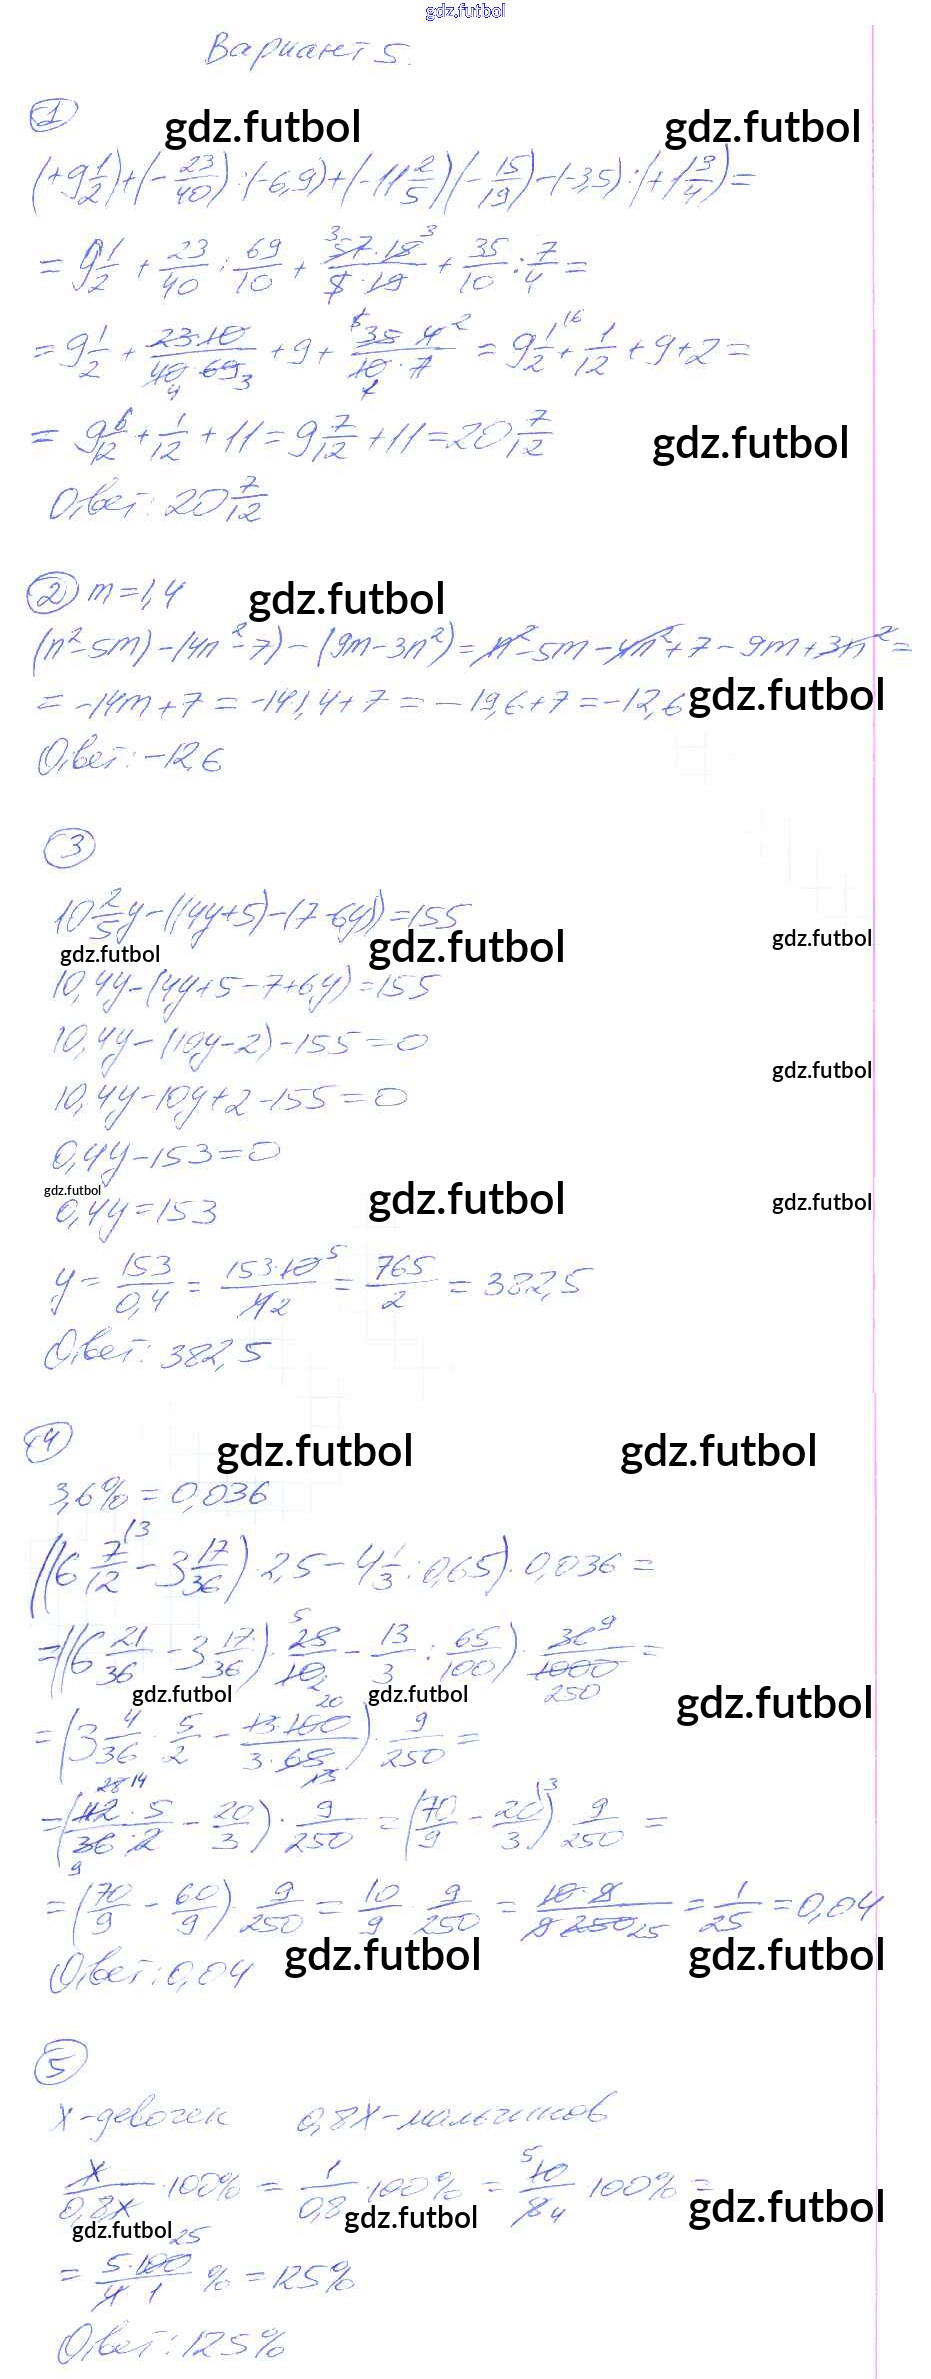 gdz.futbol
Вариант 5.
1
gdz.futbol gdz.futbol
(+9 1/2) + (- 23/40) : (-6,9) + (-11 2/5)(- 15/19) - (-3,5) : (+1 3/4) =
= 9 1/2 + 23/40 : 69/10 + 57·15/5·19 + 35/10 : 7/4 =
= 9 1/2 + 23·10/40·69 + 9 + 35·4/10·7 = 9 1/2 + 1/12 + 9 + 2 =
= 9 6/12 + 1/12 + 11 = 9 7/12 + 11 = 20 7/12
gdz.futbol
Ответ: 20 7/12
2 m = 1,4
gdz.futbol
(n² - 5m) - (4n² - 7) - (9m - 3n²) = n² - 5m - 4n² + 7 - 9m + 3n² =
= -14m + 7 = -14·1,4 + 7 = -19,6 + 7 = -12,6
gdz.futbol
Ответ: -12,6
3
10 2/5 y - ((4y+5) - (7-6y)) = 155
gdz.futbol gdz.futbol gdz.futbol
10,4y - (4y + 5 - 7 + 6y) = 155
10,4y - (10y - 2) - 155 = 0
gdz.futbol
10,4y - 10y + 2 - 155 = 0
0,4y - 153 = 0
gdz.futbol gdz.futbol gdz.futbol
0,4y = 153
y = 153/0,4 = 153·10/4 = 765/2 = 382,5
Ответ: 382,5
4
gdz.futbol gdz.futbol
3,6% = 0,036
((6 7/12 - 3 17/36) · 2,5 - 4 1/3 : 0,65) · 0,036 =
= ((6 21/36 - 3 17/36) · 25/10 - 13/3 : 65/100) · 36/1000 =
gdz.futbol gdz.futbol gdz.futbol
= (3 4/36 · 5/2 - 13·100/3·65) · 9/250 =
= (112·5/36·2 - 20/3) · 9/250 = (70/9 - 20/3) · 9/250 =
= (70/9 - 60/9) · 9/250 = 10/9 · 9/250 = 10·9/9·250 = 1/25 = 0,04
gdz.futbol gdz.futbol
Ответ: 0,04
5
x - девочек 0,8x - мальчиков
x/0,8x · 100% = 1/0,8 · 100% = 10/8 · 100% =
gdz.futbol gdz.futbol gdz.futbol
= 5·100/4·1 % = 125%
Ответ: 125%